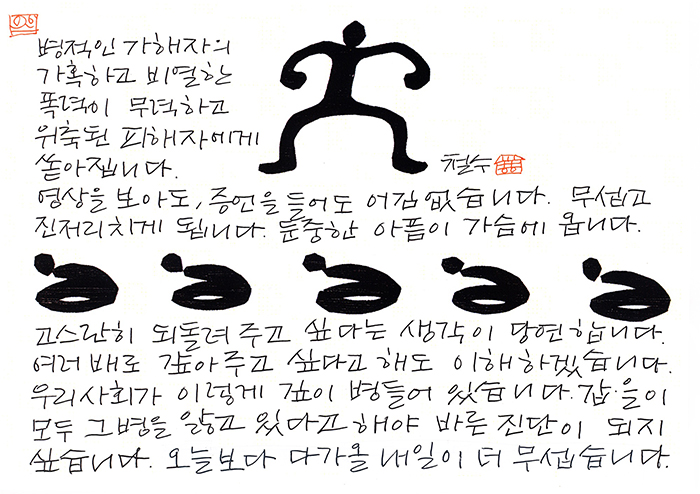 병적인 가해자의
가혹하고 비열한
폭력이 무력하고
위축된 피해자에게
쏟아집니다.
철수
영상을 보아도, 증언을 들어도 어김 없습니다. 무섭고
진저리치게 됩니다. 둔중한 아픔이 가슴에 옵니다.
고스란히 되돌려 주고 싶다는 생각이 당연합니다.
여러 배로 갚아주고 싶다고 해도 이해하겠습니다.
우리사회가 이렇게 깊이 병들어 있습니다. 갑·을이
모두 그 병을 앓고 있다고 해야 바른 진단이 되지
싶습니다. 오늘보다 다가올 내일이 더 무섭습니다.